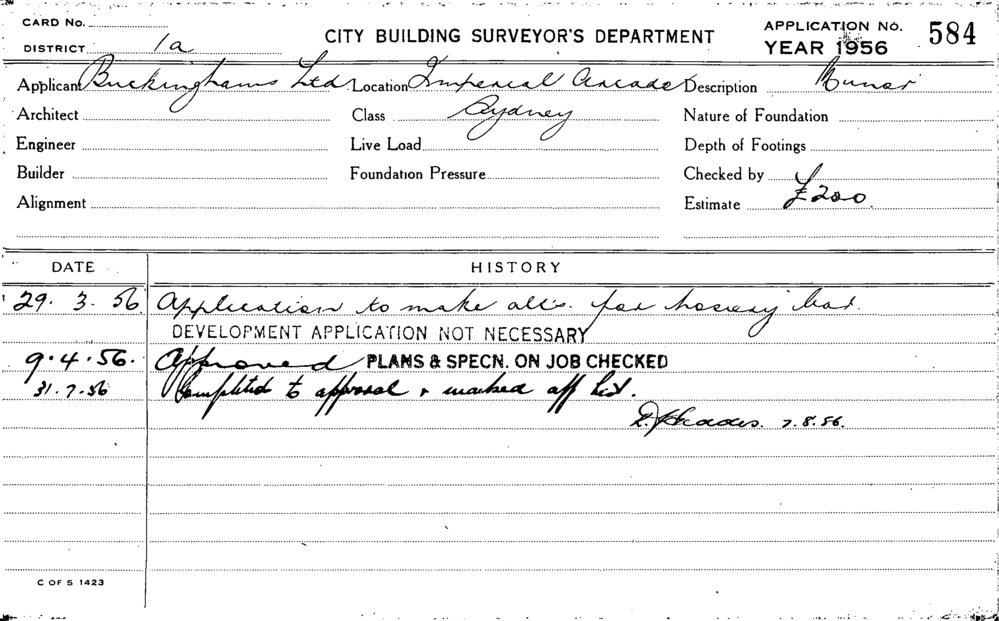 CARD No. APPLICATION No. 584
DISTRICT 1a CITY BUILDING SURVEYOR'S DEPARTMENT YEAR 1956
Applicant Buckinghams Ltd Location Imperial Arcade Description Minor
Architect Class Sydney Nature of Foundation
Engineer Live Load Depth of Footings
Builder Foundation Pressure Checked by
Alignment Estimate £200.
DATE HISTORY
29. 3. 56 Application to make alts. for hosiery bar.
DEVELOPMENT APPLICATION NOT NECESSARY
9.4.56. Approved PLANS & SPECN. ON JOB CHECKED
31.7.56 Completed to approval & marked off list.
7.8.56.
C OF S 1423